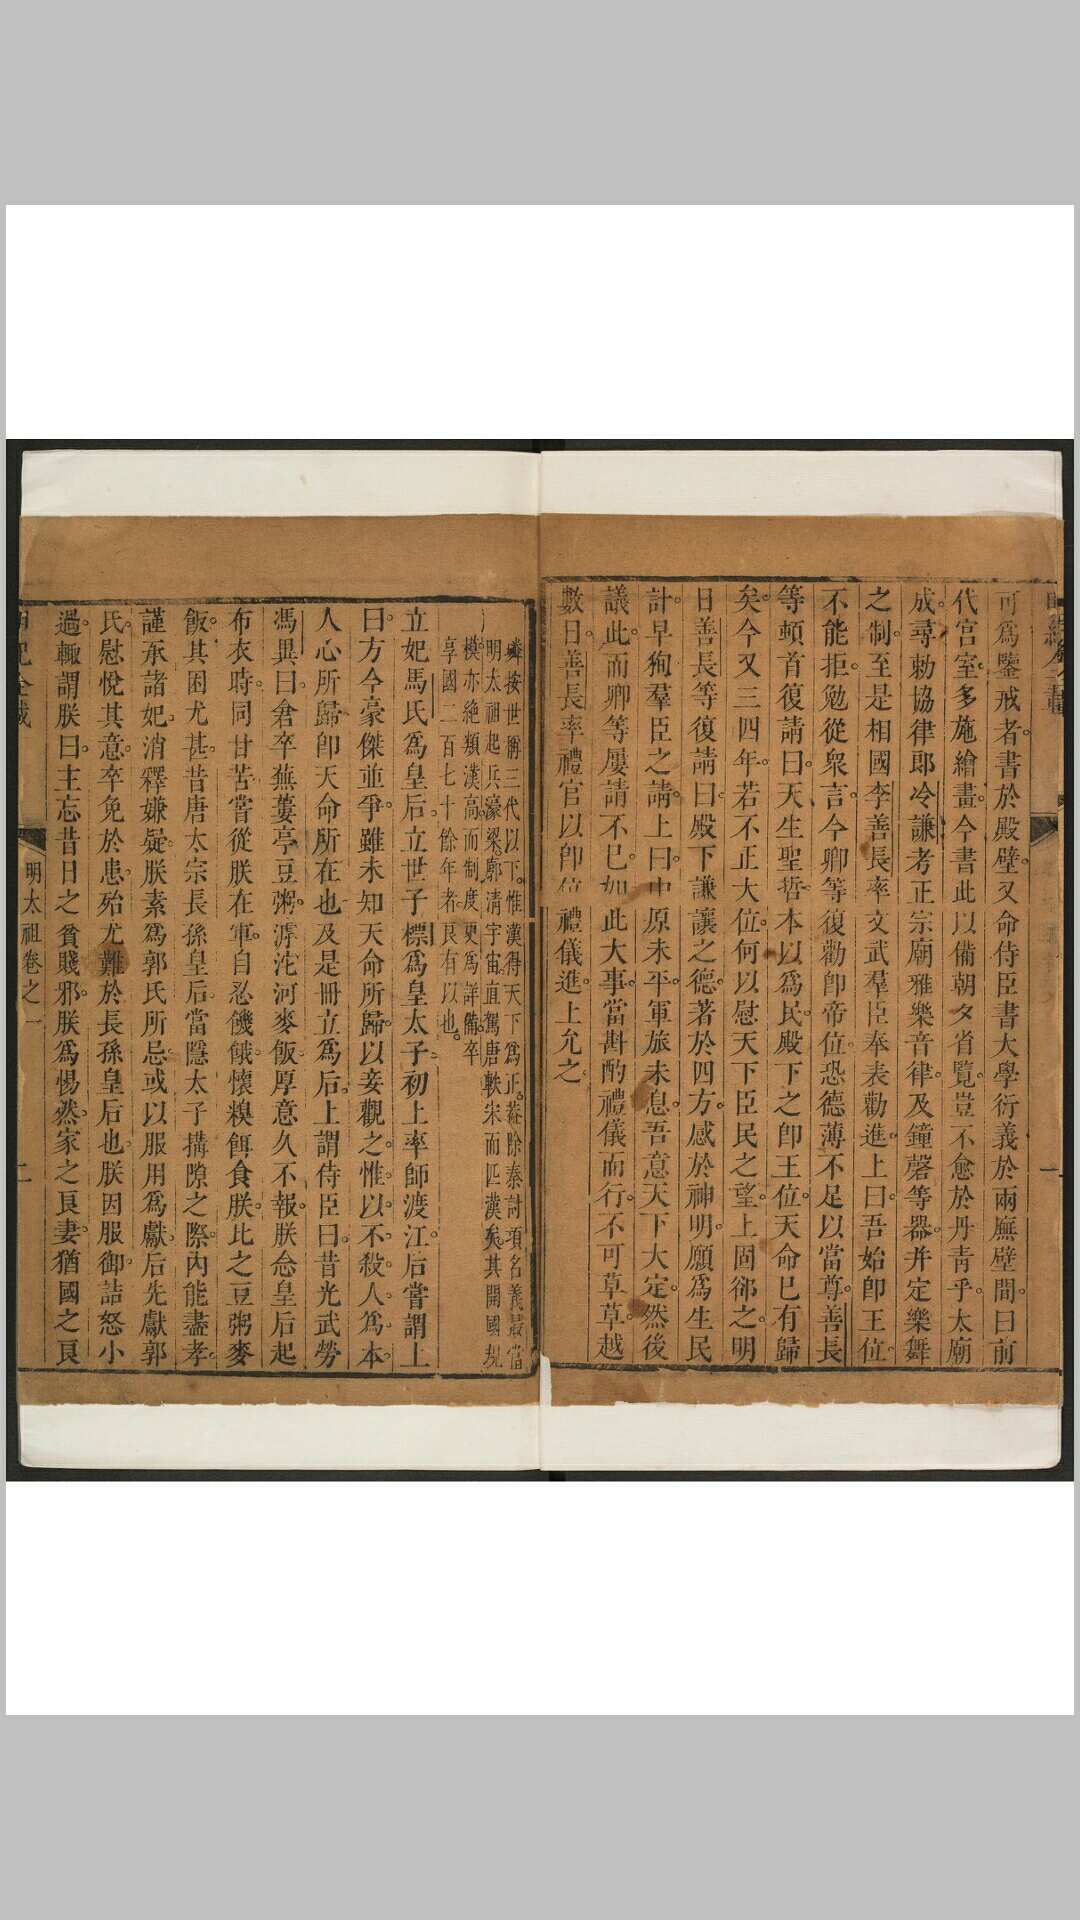 可爲鑒戒者書於殿壁又命侍臣書大學衍義於兩廡壁間曰前
代宮室多施繪畫今書此以備朝夕省覽豈不愈於丹青乎太廟
成尋勅協律郎冷謙考正宗廟雅樂音律及鐘磬等器并定樂舞
之制至是相國李善長率文武羣臣奉表勸進上曰吾始卽王位
不能拒勉從衆言今卿等復勸卽帝位恐德薄不足以當尊善長
等頓首復請曰天生聖哲本以爲民殿下之卽王位天命已有歸
矣今又三四年若不正大位何以慰天下臣民之望上固郤之明
日善長等復請曰殿下謙讓之德著於四方感於神明願爲生民
計早狥羣臣之請上曰中原未平軍旅未息吾意天下大定然後
議此而卿等屢請不已如此大事當斟酌禮儀而行不可草草越
數日善長率禮官以卽位禮儀進上允之
按世觧三代以下惟漢得天下爲正菴除秦討項名義最當
明太祖起兵濠梁郭清宇宙直駕唐軼宋而匹漢矣其開國規
模亦絶類漢高而制度更爲詳備卒
享國二百七十餘年者良有以也
立妃馬氏爲皇后立世子標爲皇太子初上率師渡江后嘗謂上
曰方今豪傑並爭雖未知天命所歸以妾觀之惟以不殺人爲本
人心所歸卽天命所在也及是冊立爲后上謂侍臣曰昔光武勞
馮異曰倉卒蕪蔞亭豆粥滹沱河麥飯厚意久不報朕念皇后起
布衣時同甘苦嘗從朕在軍自忍饑餓懷糗餌食朕比之豆粥麥
飯其困尤甚昔唐太宗長孫皇后當隱太子搆隙之際內能盡孝
謹承諸妃消釋嫌疑朕素爲郭氏所忌或以服用爲獻后先獻郭
氏慰悅其意卒免於患殆尤難於長孫皇后也朕因服御詰怒小
過輒謂朕曰主忘昔日之貧賤邪朕爲惕然家之良妻猶國之良
明太祖卷之一
二